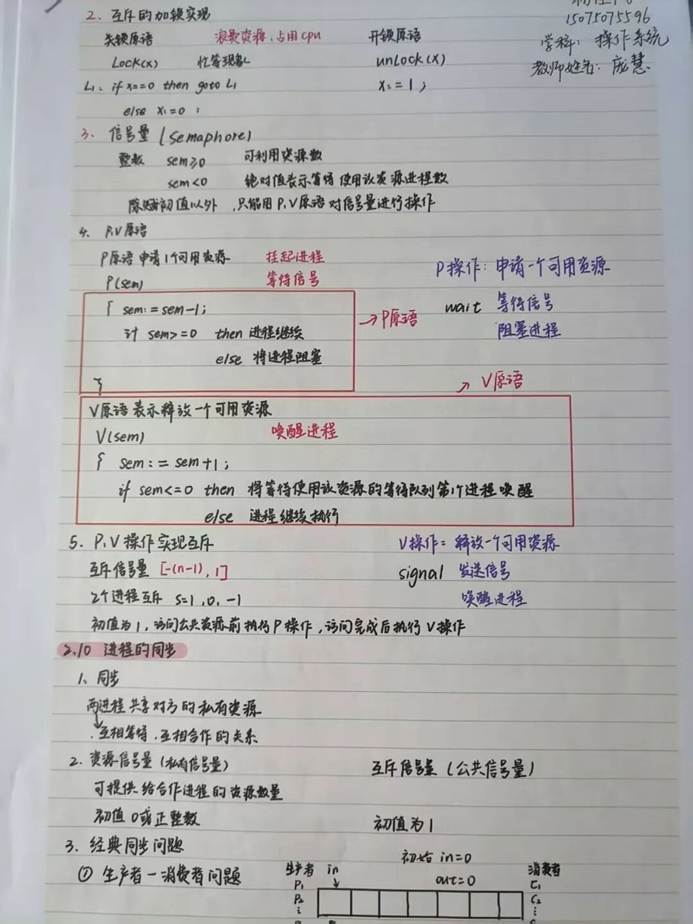 2. 互斥的加锁实现
15075075596
关锁原语 浪费资源,占用cpu 开锁原语
学科: 操作系统
Lock(x) 忙等现象 unLock(x)
教师姓名: 庞慧
L₁: if x==0 then goto L₁ x:=1;
else x:=0;
3. 信号量 (Semaphore)
整数 sem≥0 可利用资源数
sem<0 绝对值表示等待使用该资源进程数
除赋初值以外,只能用P.V原语对信号量进行操作
4. P.V原语
P原语申请1个可用资源 挂起进程
P操作: 申请一个可用资源
P(sem) 等待信号
{ sem:=sem-1; →P原语 wait 等待信号
if sem>=0 then 进程继续 阻塞进程
else 将进程阻塞
}
→ V原语
V原语表示释放一个可用资源
V(sem) 唤醒进程
{ sem:=sem+1;
if sem<=0 then 将等待使用该资源的等待队列第1个进程唤醒
else 进程继续执行
5. P.V操作实现互斥 V操作: 释放一个可用资源
互斥信号量 [-(n-1),1] signal 发送信号
2个进程互斥 S=1,0,-1 唤醒进程
初值为1,访问公共资源前执行P操作,访问完成后执行V操作
2.10 进程的同步
1. 同步
两进程共享对方的私有资源
互相等待.互相合作的关系
2. 资源信号量(私有信号量) 互斥信号量(公共信号量)
可提供给合作进程的资源数量
初值0或正整数 初值为1
3. 经典同步问题
初始 in=0
① 生产者-消费者问题 生产者 in out=0 消费者
P₁ C₁
P₂ C₂